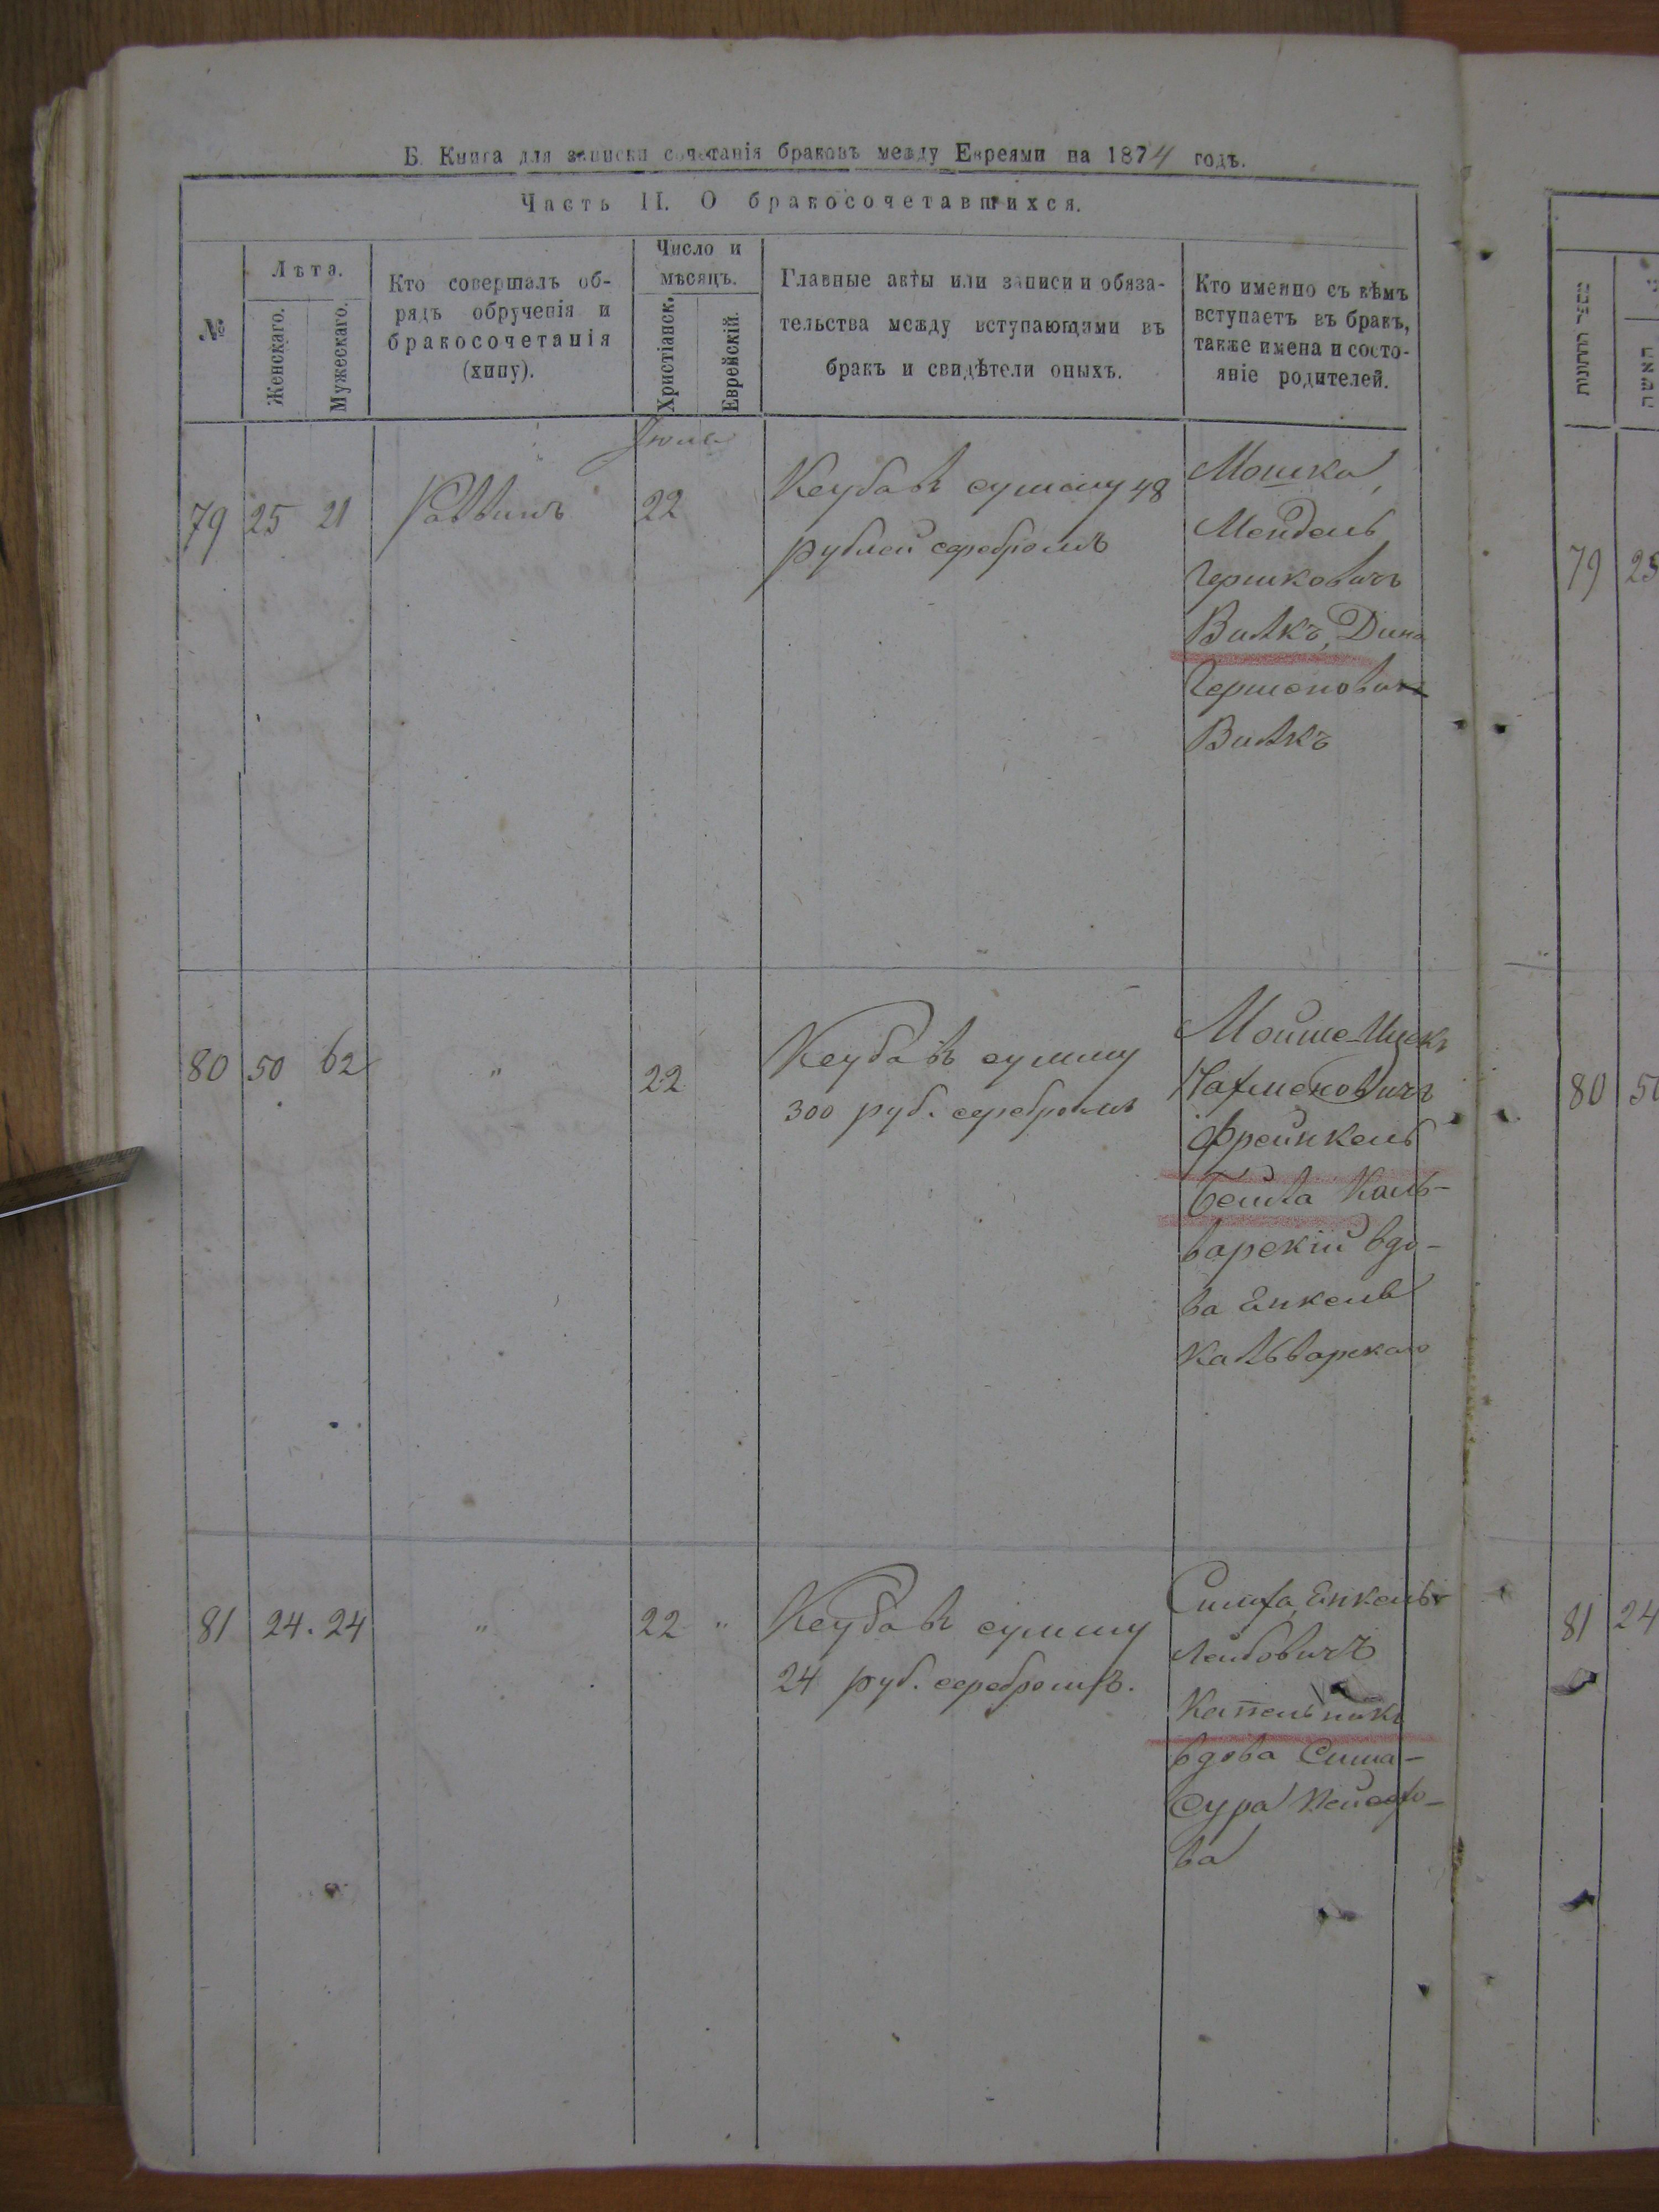 Б. Книга для записки сочетанія браковъ между Евреями на 1874 годъ.
Часть II. О бракосочетавшихся.
№
Лѣта.
Женскаго.
Мужескаго.
Кто совершалъ об-
рядъ обрученія и
бракосочетанія
(хипу).
Число и
мѣсяцъ.
Христіанск.
Еврейскій.
Главные акты или записи и обяза-
тельства между вступающими въ
бракъ и свидѣтели оныхъ.
Кто именно съ кѣмъ
вступаетъ въ бракъ,
также имена и состо-
яніе родителей.
79 25 21 Раввинъ 22
Кеуба въ сумму 48
рублей серебромъ
Мошка
Мендель
Гершковичъ
Вилкъ, Дина
Вилкъ
80 50 62 " 22
Кеуба въ сумму
300 руб. серебромъ
Мойше-Ицекъ
Нахменовичъ
Фрейнкель
Бейла Каль-
варскій вдо-
ва Енкеля
Кальварскаго
81 24. 24 " 22 "
Кеуба въ сумму
24 руб. серебромъ.
Симха Енкель
Лейбовичъ
Капельникъ
вдова Сима-
Сура
ва
מספר החתונות
האשה
79 25
80 50
81 24